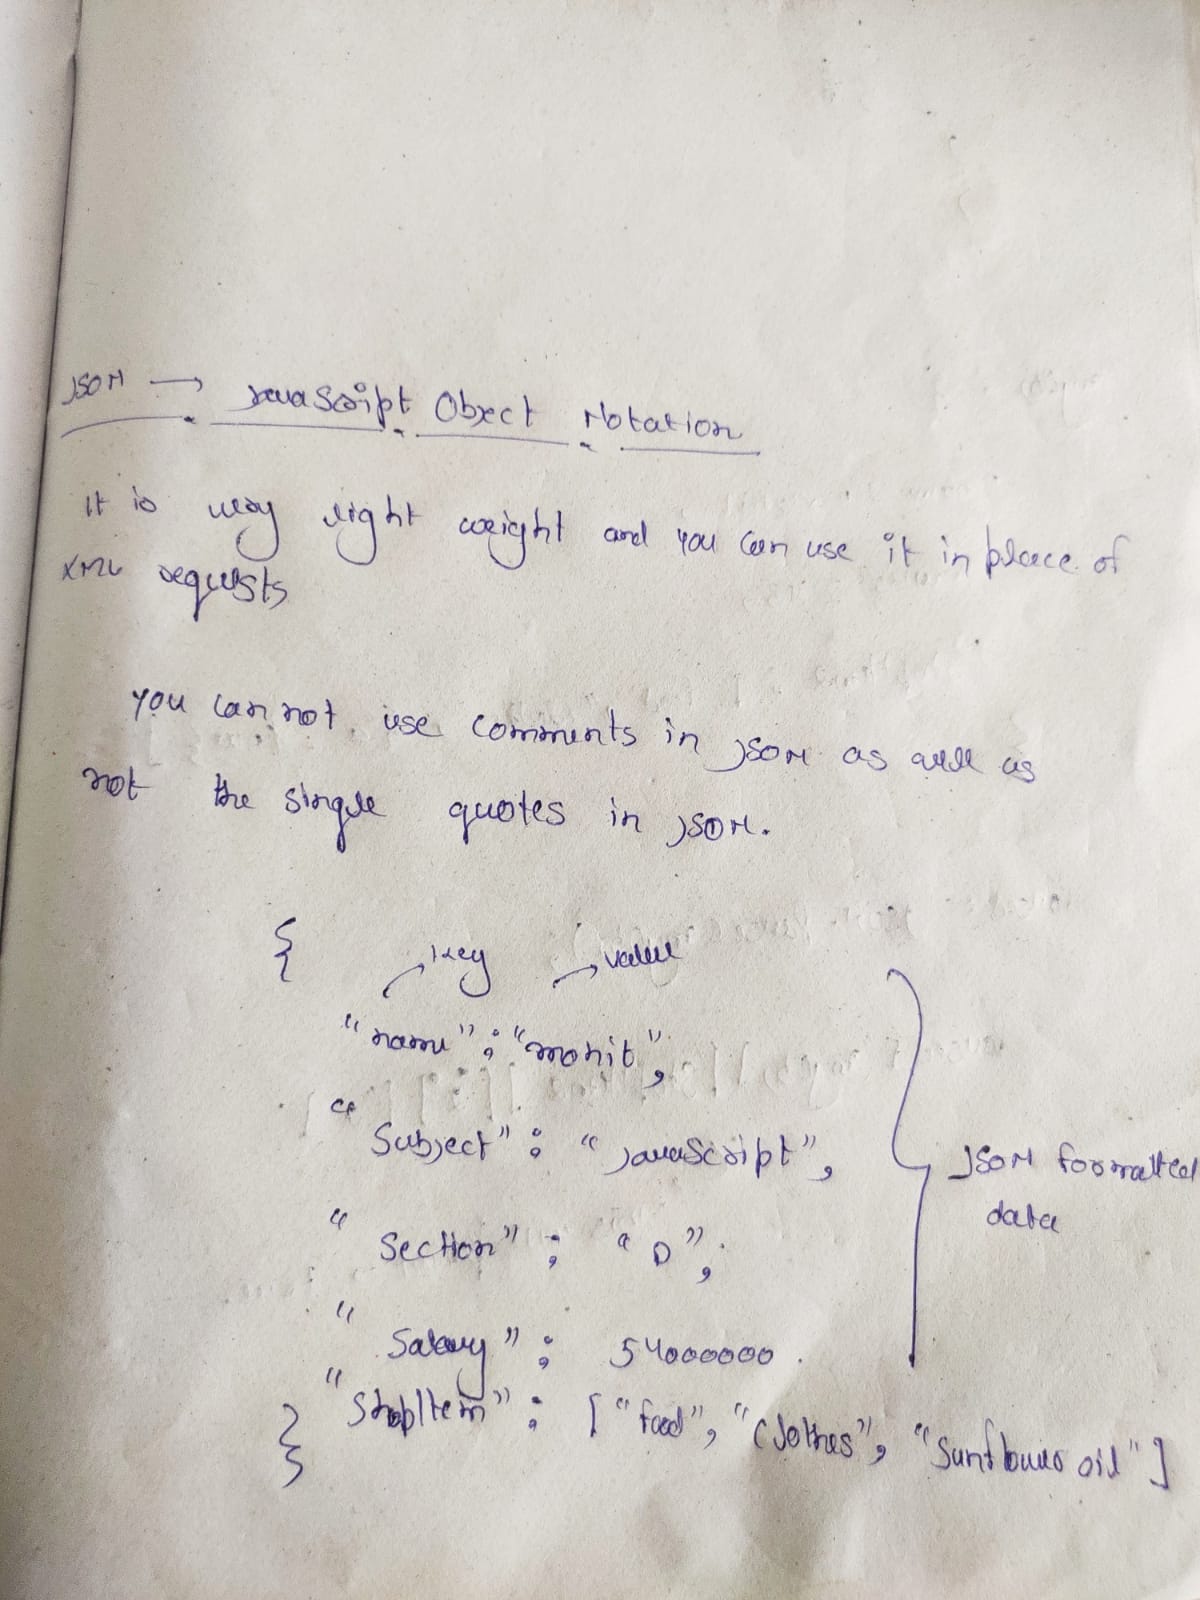 JSON → JavaScript Object Notation
It is very light weight and you can use it in place of
XML requests
you can not use comments in JSON as well as
not the single quotes in JSON.
{ key value
"name" : "mohit",
"Subject" : "JavaScript",
"Section" : "D",
"Salary" : 54000000 .
JSON formatted
data
"ShopItem" : ["food", "Clothes", "Sunflower oil"]
}